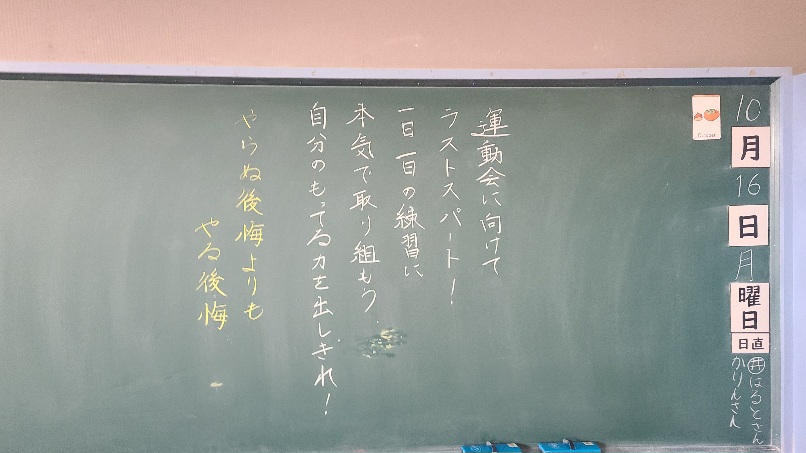 10月16日月曜日
日直
㊉はるとさん
かりんさん
運動会に向けて
ラストスパート！
一日一日の練習に
本気で取り組もう
自分のもってる力を出しきれ！
やらぬ後悔よりも
やる後悔